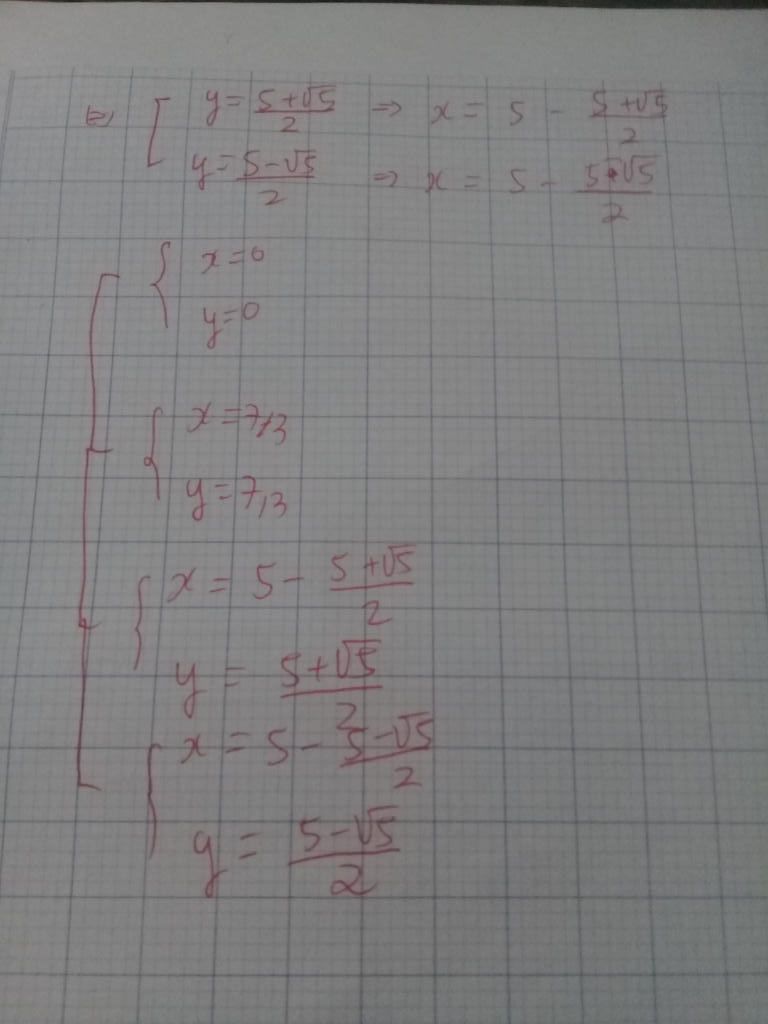 ⇔ [ y = (5+√5)/2 ⇒ x = 5 - (5+√5)/2
y = (5-√5)/2 ⇒ x = 5 - (5-√5)/2
[ { x=0
y=0
{ x=7,13
y=7,13
{ x = 5 - (5+√5)/2
y = (5+√5)/2
{ x = 5 - (5-√5)/2
y = (5-√5)/2